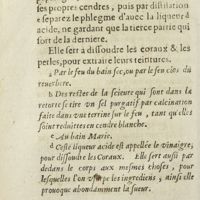 ses propres cendres, puis par distillation
e separez le phlegme d'avec la liqueur
acide, ne gardant que la tierce partie qui
sort de la derniere.
Elle sert à dissoudre les coraux & les
perles, pour extraire leurs teintures.
a Par le feu du bain sec, ou par le feu clos du
reuerbere.
b Des restes de la scieure qui sont dans la
retorte se tire vn sel purgatif par calcination
faite dans vne terrine sur le feu, tant qu'elles
soient reduittes en cendre blanche.
c Au bain Marie.
d Ceste liqueur acide est appellée le vinaigre,
pour dissoudre les Coraux. Elle sert aussi par
dedans le corps aux mesmes choses, pour
lesquelles l'on vsurpe les ingrediens; ainsi elle
prouoque abondamment la sueur.